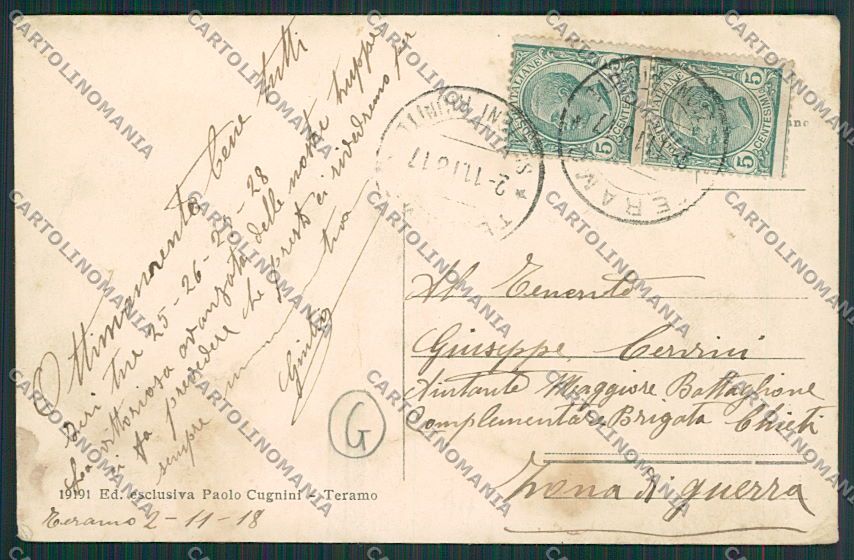 Ottimamente bene tutti
Ieri tre 25-26-27-28
La vittoriosa avanzata delle nostre truppe
ci fa prevedere che presto ci rivedremo per
sempre
tua
Giulia
G
19191 Ed. esclusiva Paolo Cugnini - Teramo
Teramo 2-11-18
5 CENTESIMI 5
5 CENTESIMI 5
2-11.18 17
TERAMO
Al Tenente
Giuseppe Cerrini
Aiutante Maggiore Battaglione
Complementare Brigata Chieti
Zona di guerra
CARTOLINOMANIA